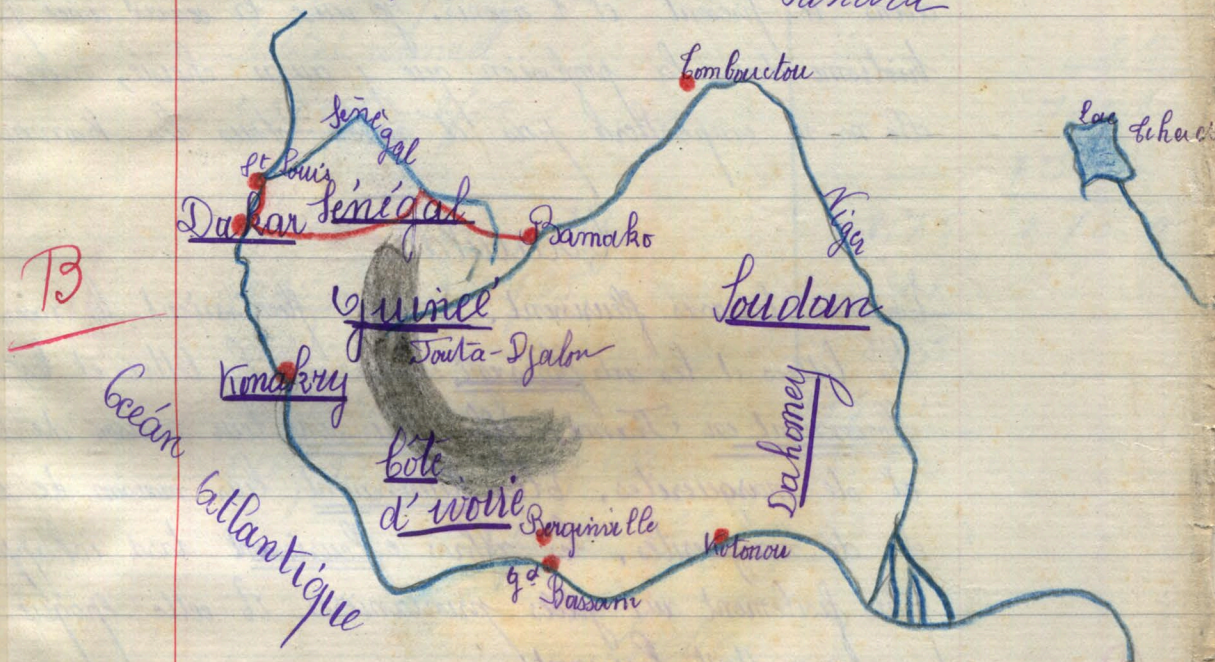 Tombouctou
Lac Tchad
Sénégal
St Louis
Dakar
Sénégal
Bamako
Niger
B
Guinée
Fouta-Djalon
Soudan
Konakry
Dahomey
Océan
Atlantique
Côte
d'ivoire
Berginville
Kotonou
Gd
Bassam